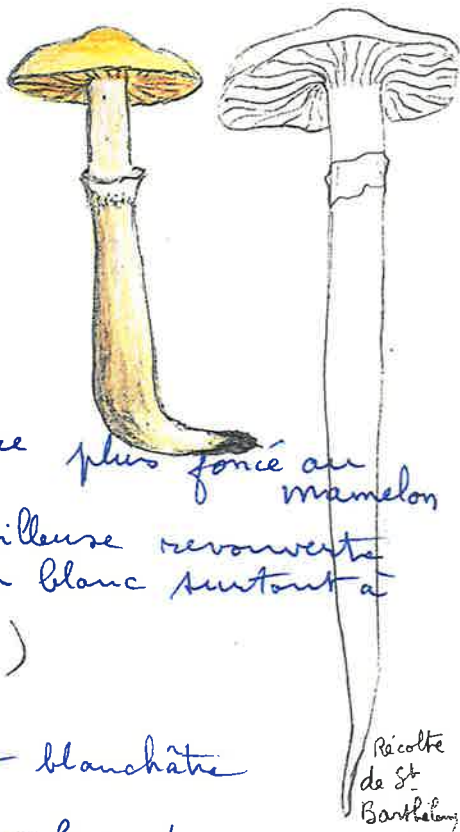 plus foncé au
mamelon
illeuse recouverte
blanc surtout à
)
- blanchâtre
Récolte
de St
Barthélemy